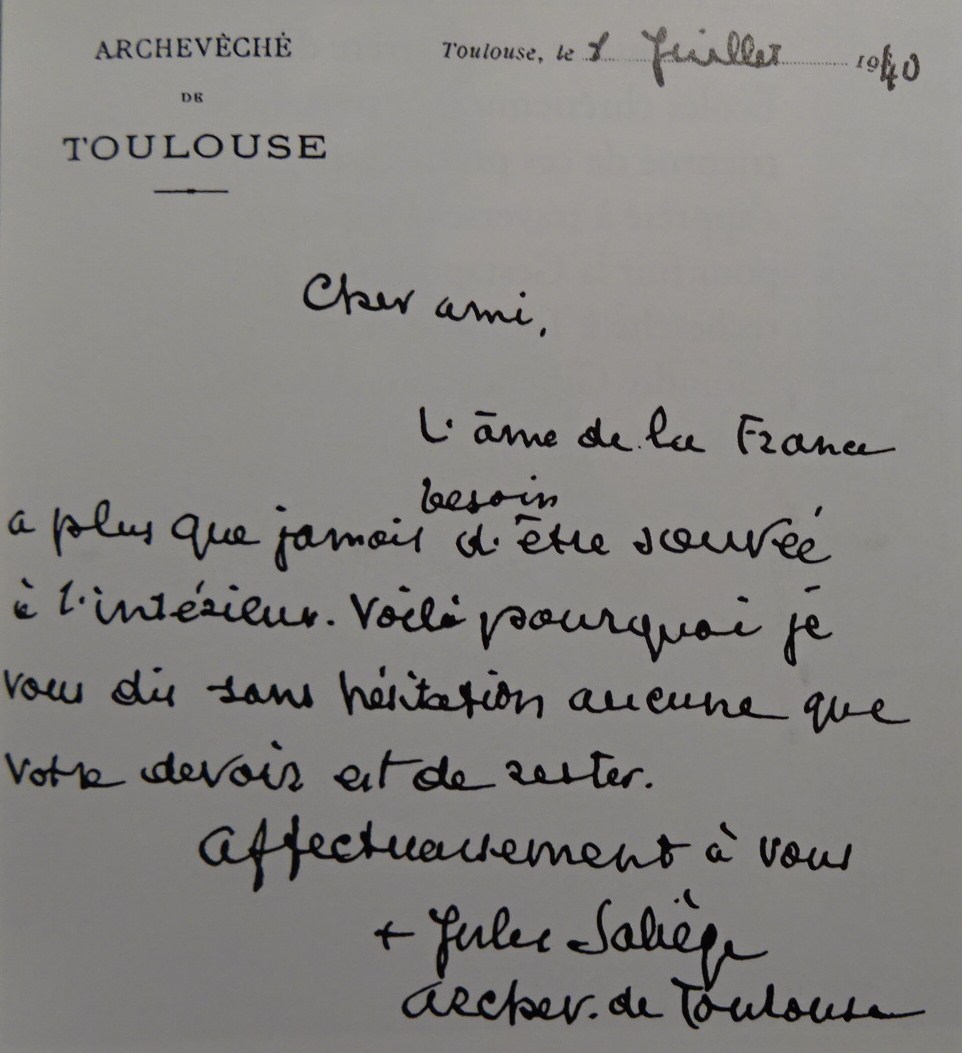 ARCHEVÊCHÉ
DE
TOULOUSE
Toulouse, le Juillet 1940
Cher ami,
L'âme de la France
besoin
a plus que jamais d'être sauvée
à l'intérieur. Voilà pourquoi je
vous dis sans hésitation aucune que
votre devoir est de rester.
Affectueusement à vous
+ Jules Saliège
archev. de Toulouse